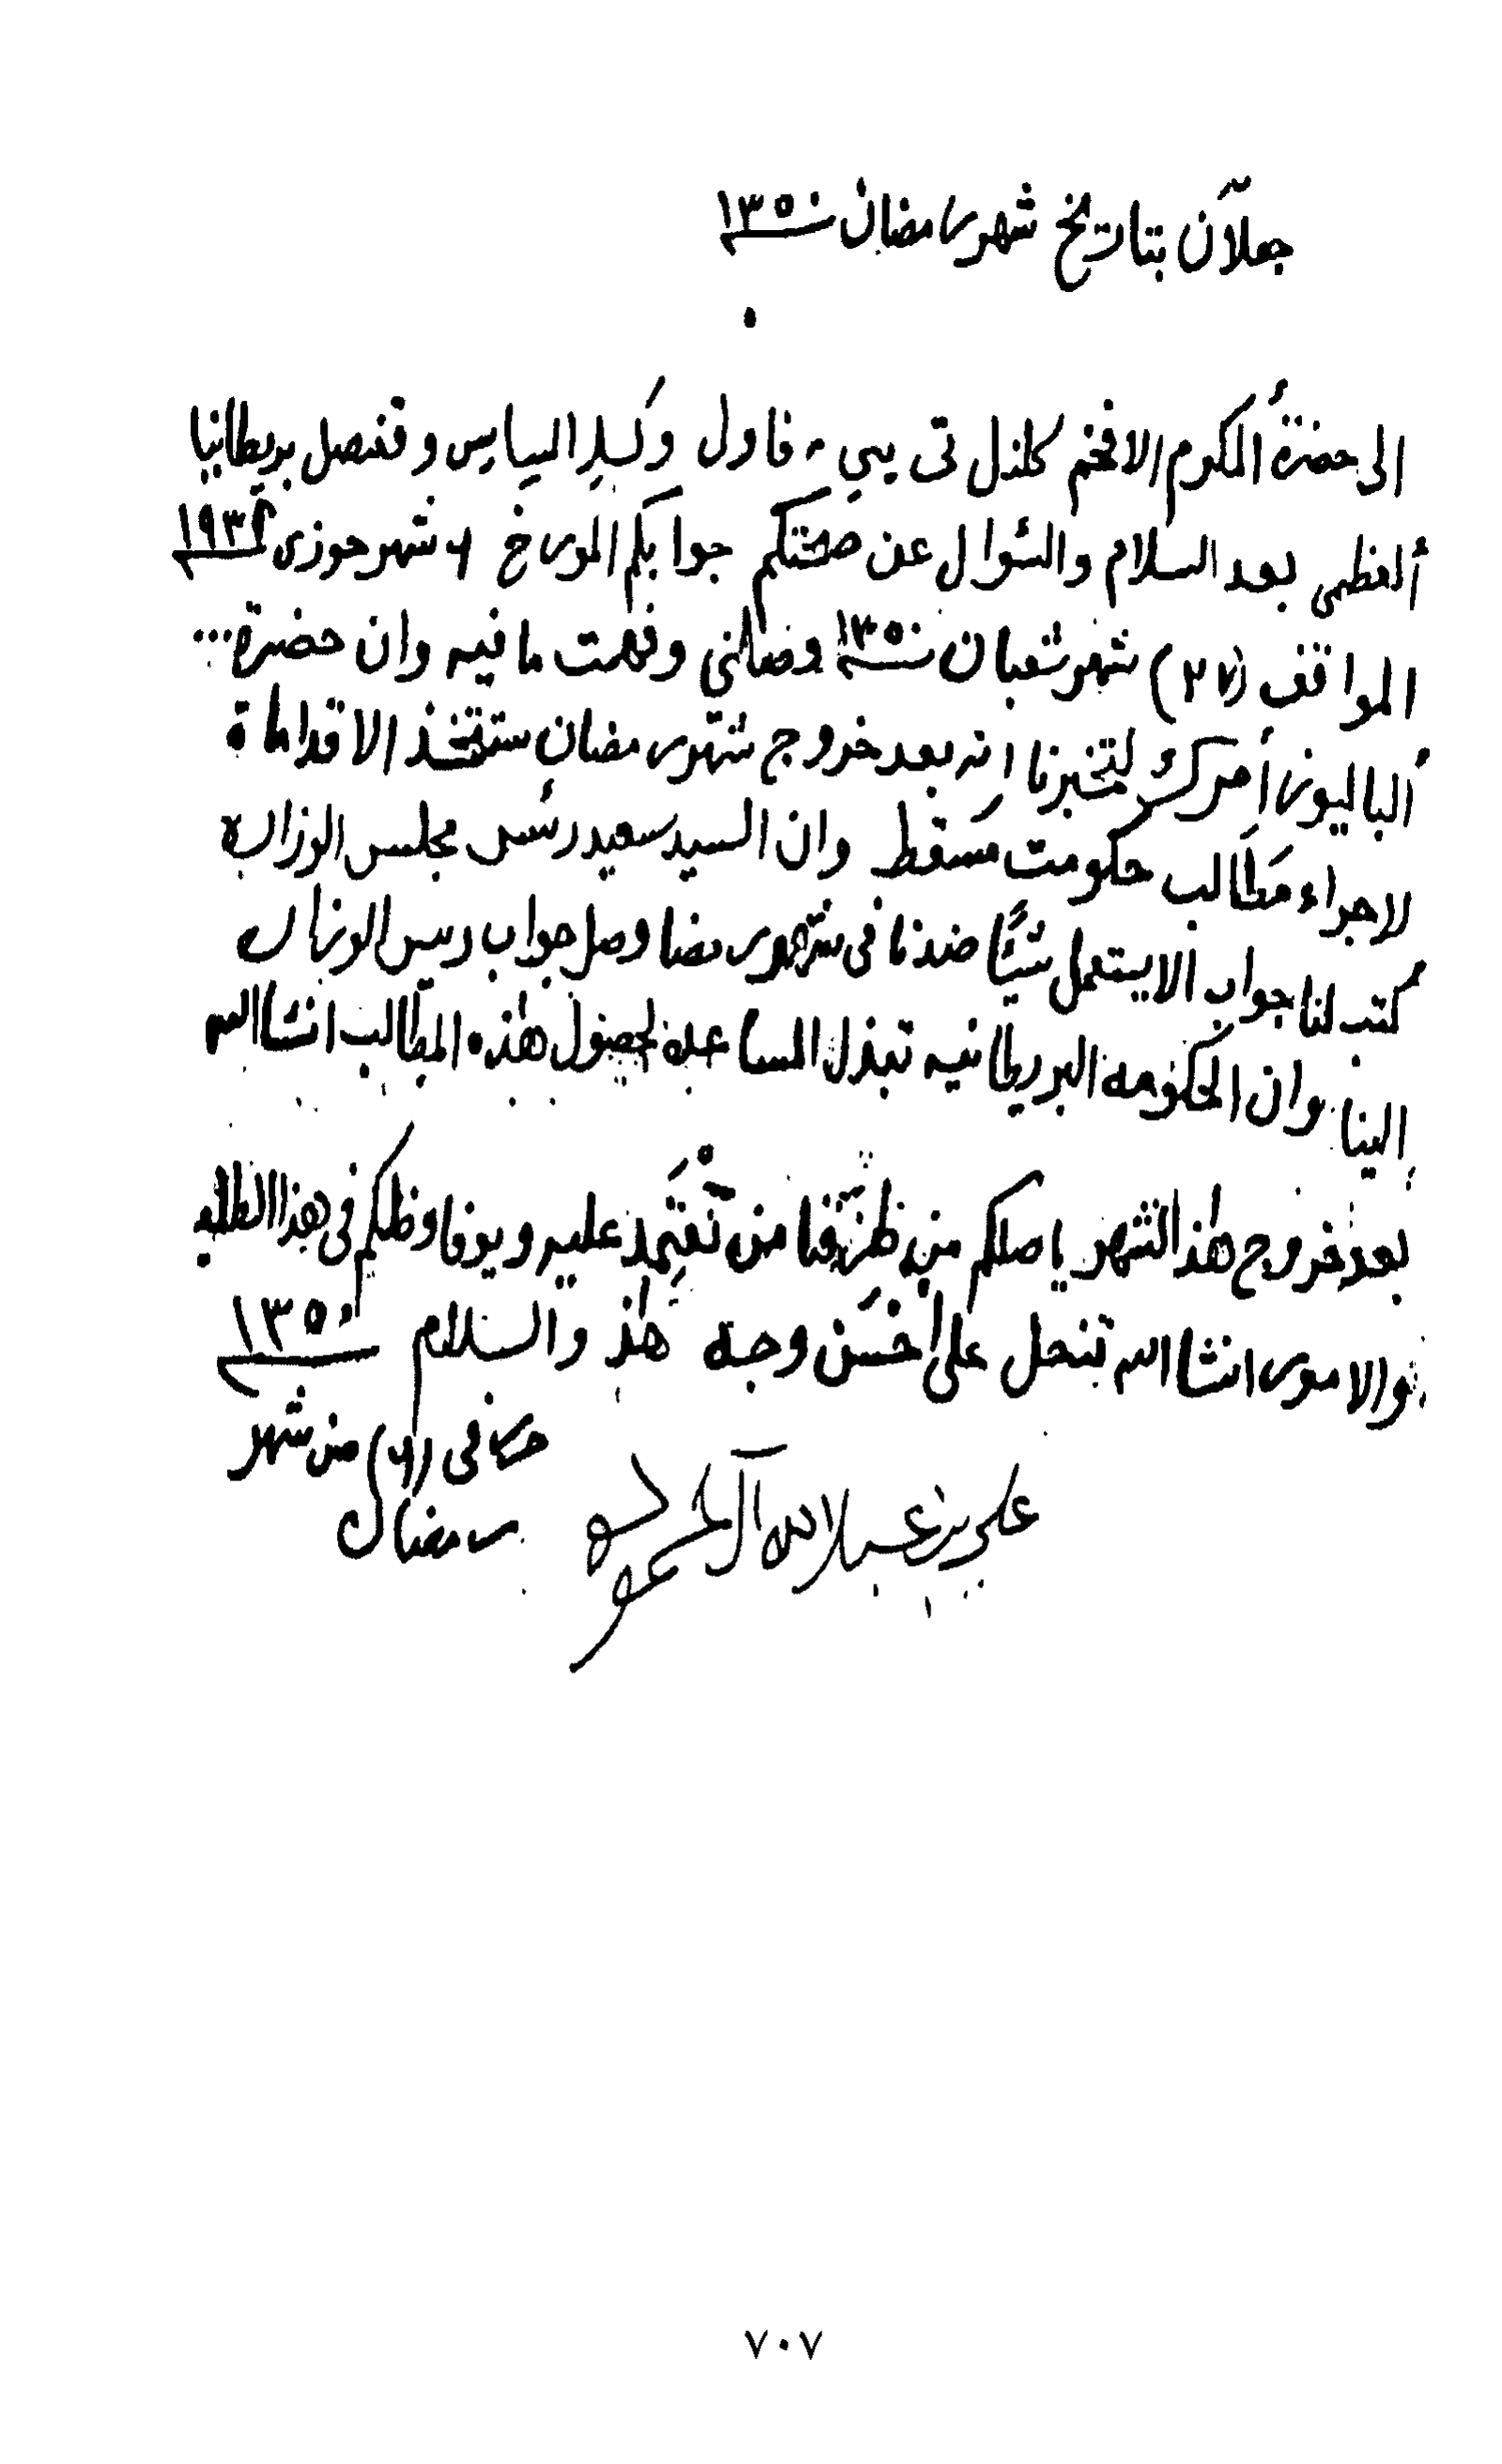 جعلاّن بتاريخ شهر رمضان سنة ١٣٥٠
الى حضرة المكرم الافخم كلنل تى بيى فاول وكيل السياسى وقنصل بريطانيا
ألعظمى بعد السلام والسؤال عن صحتكم جوابكم المورخ ٦ شهر جوزى ١٩٣٢
الموافق (٢٧) شهر شعبان سنة ١٣٥٠ وصلني وفهمت ما فيه وان حضرة...
ألباليوز أمرك لتخبرنا انه بعد خروج شهر رمضان ستتخذ الاقداماة
لاجراء مطالب حكومت مسقط وان السيد سعيد رئس مجلس الوزاره
كتب لنا جواب الا يستعمل شيئًا ضدنا فى شهر رمضا وصل جواب رييس الوزار
إلينا وان الحكومه البريطانيه تبذل المساعده لحصول هذه المطالب انشا الله
بعد خروج هذا الشهر ياصلكم من طرفنا من نعتمد عليه ويوفاوظكم فى هذا الطلب
والامور انشا الله تنحل على احسن وجه هذا والسلام سنة ١٣٥٠
حرر فى (٦) من شهر
رمضان
علي بن عبد الله آل حموده
٧٠٧